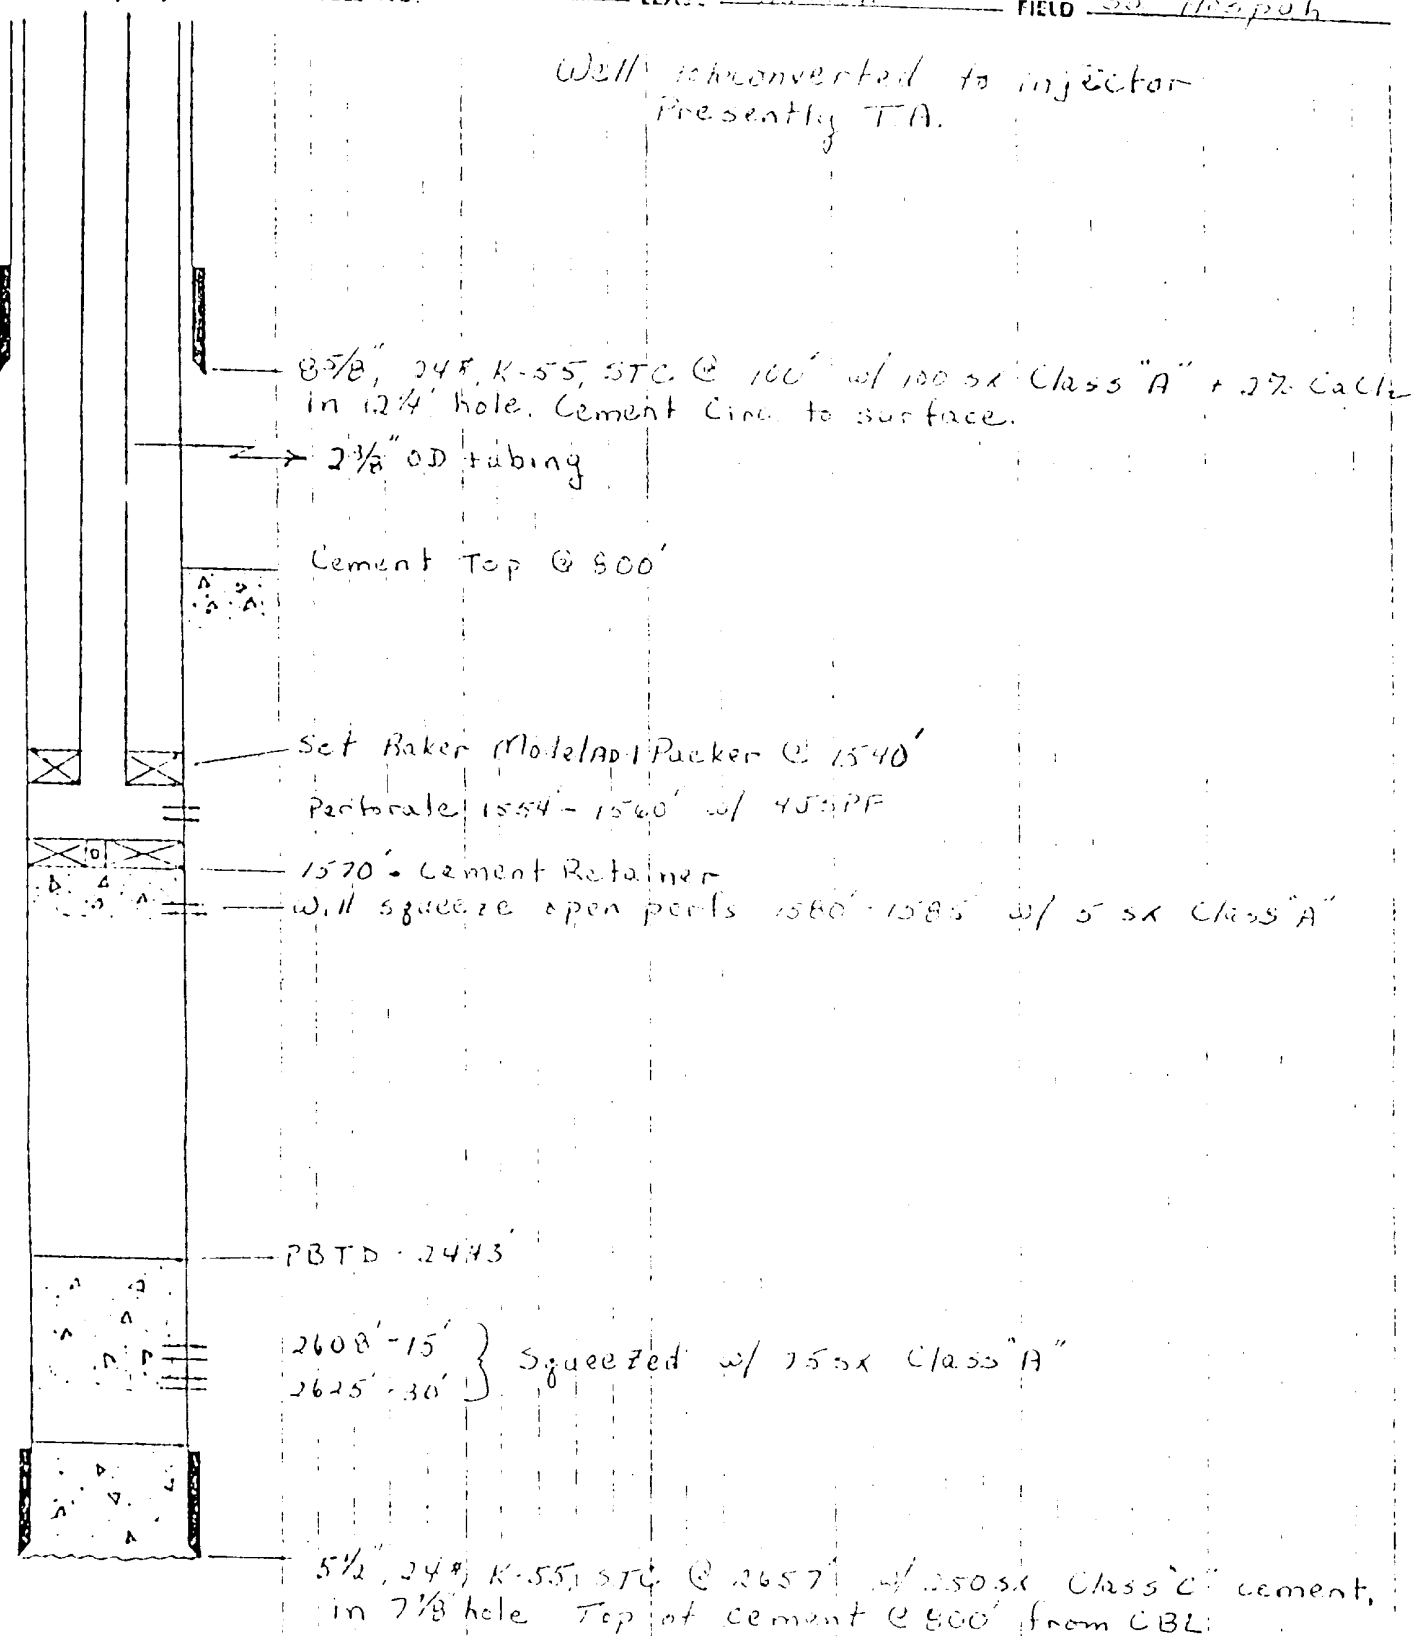 FIELD So Hospah
Well to be converted to injector
Presently T.A.
8 5/8", 24#, K-55, STC @ 100' w/ 100 sx Class "A" + 2% CaCl2
in 12 1/4" hole. Cement Circ. to surface.
2 3/8" OD tubing
Cement Top @ 800'
Set Baker Model AD-1 Packer @ 1540'
Perforate 1554' - 1560' w/ 4 JSPF
1570' - Cement Retainer
Will squeeze open perfs 1580' - 1585' w/ 5 sx Class "A"
PBTD - 2443'
2608' - 15'
2625' - 30'
Squeezed w/ 75 sx Class "A"
5 1/2", 24#, K-55, STC @ 2657' w/ 250 sx Class "C" cement,
in 7 7/8" hole Top of cement @ 800' from CBL.